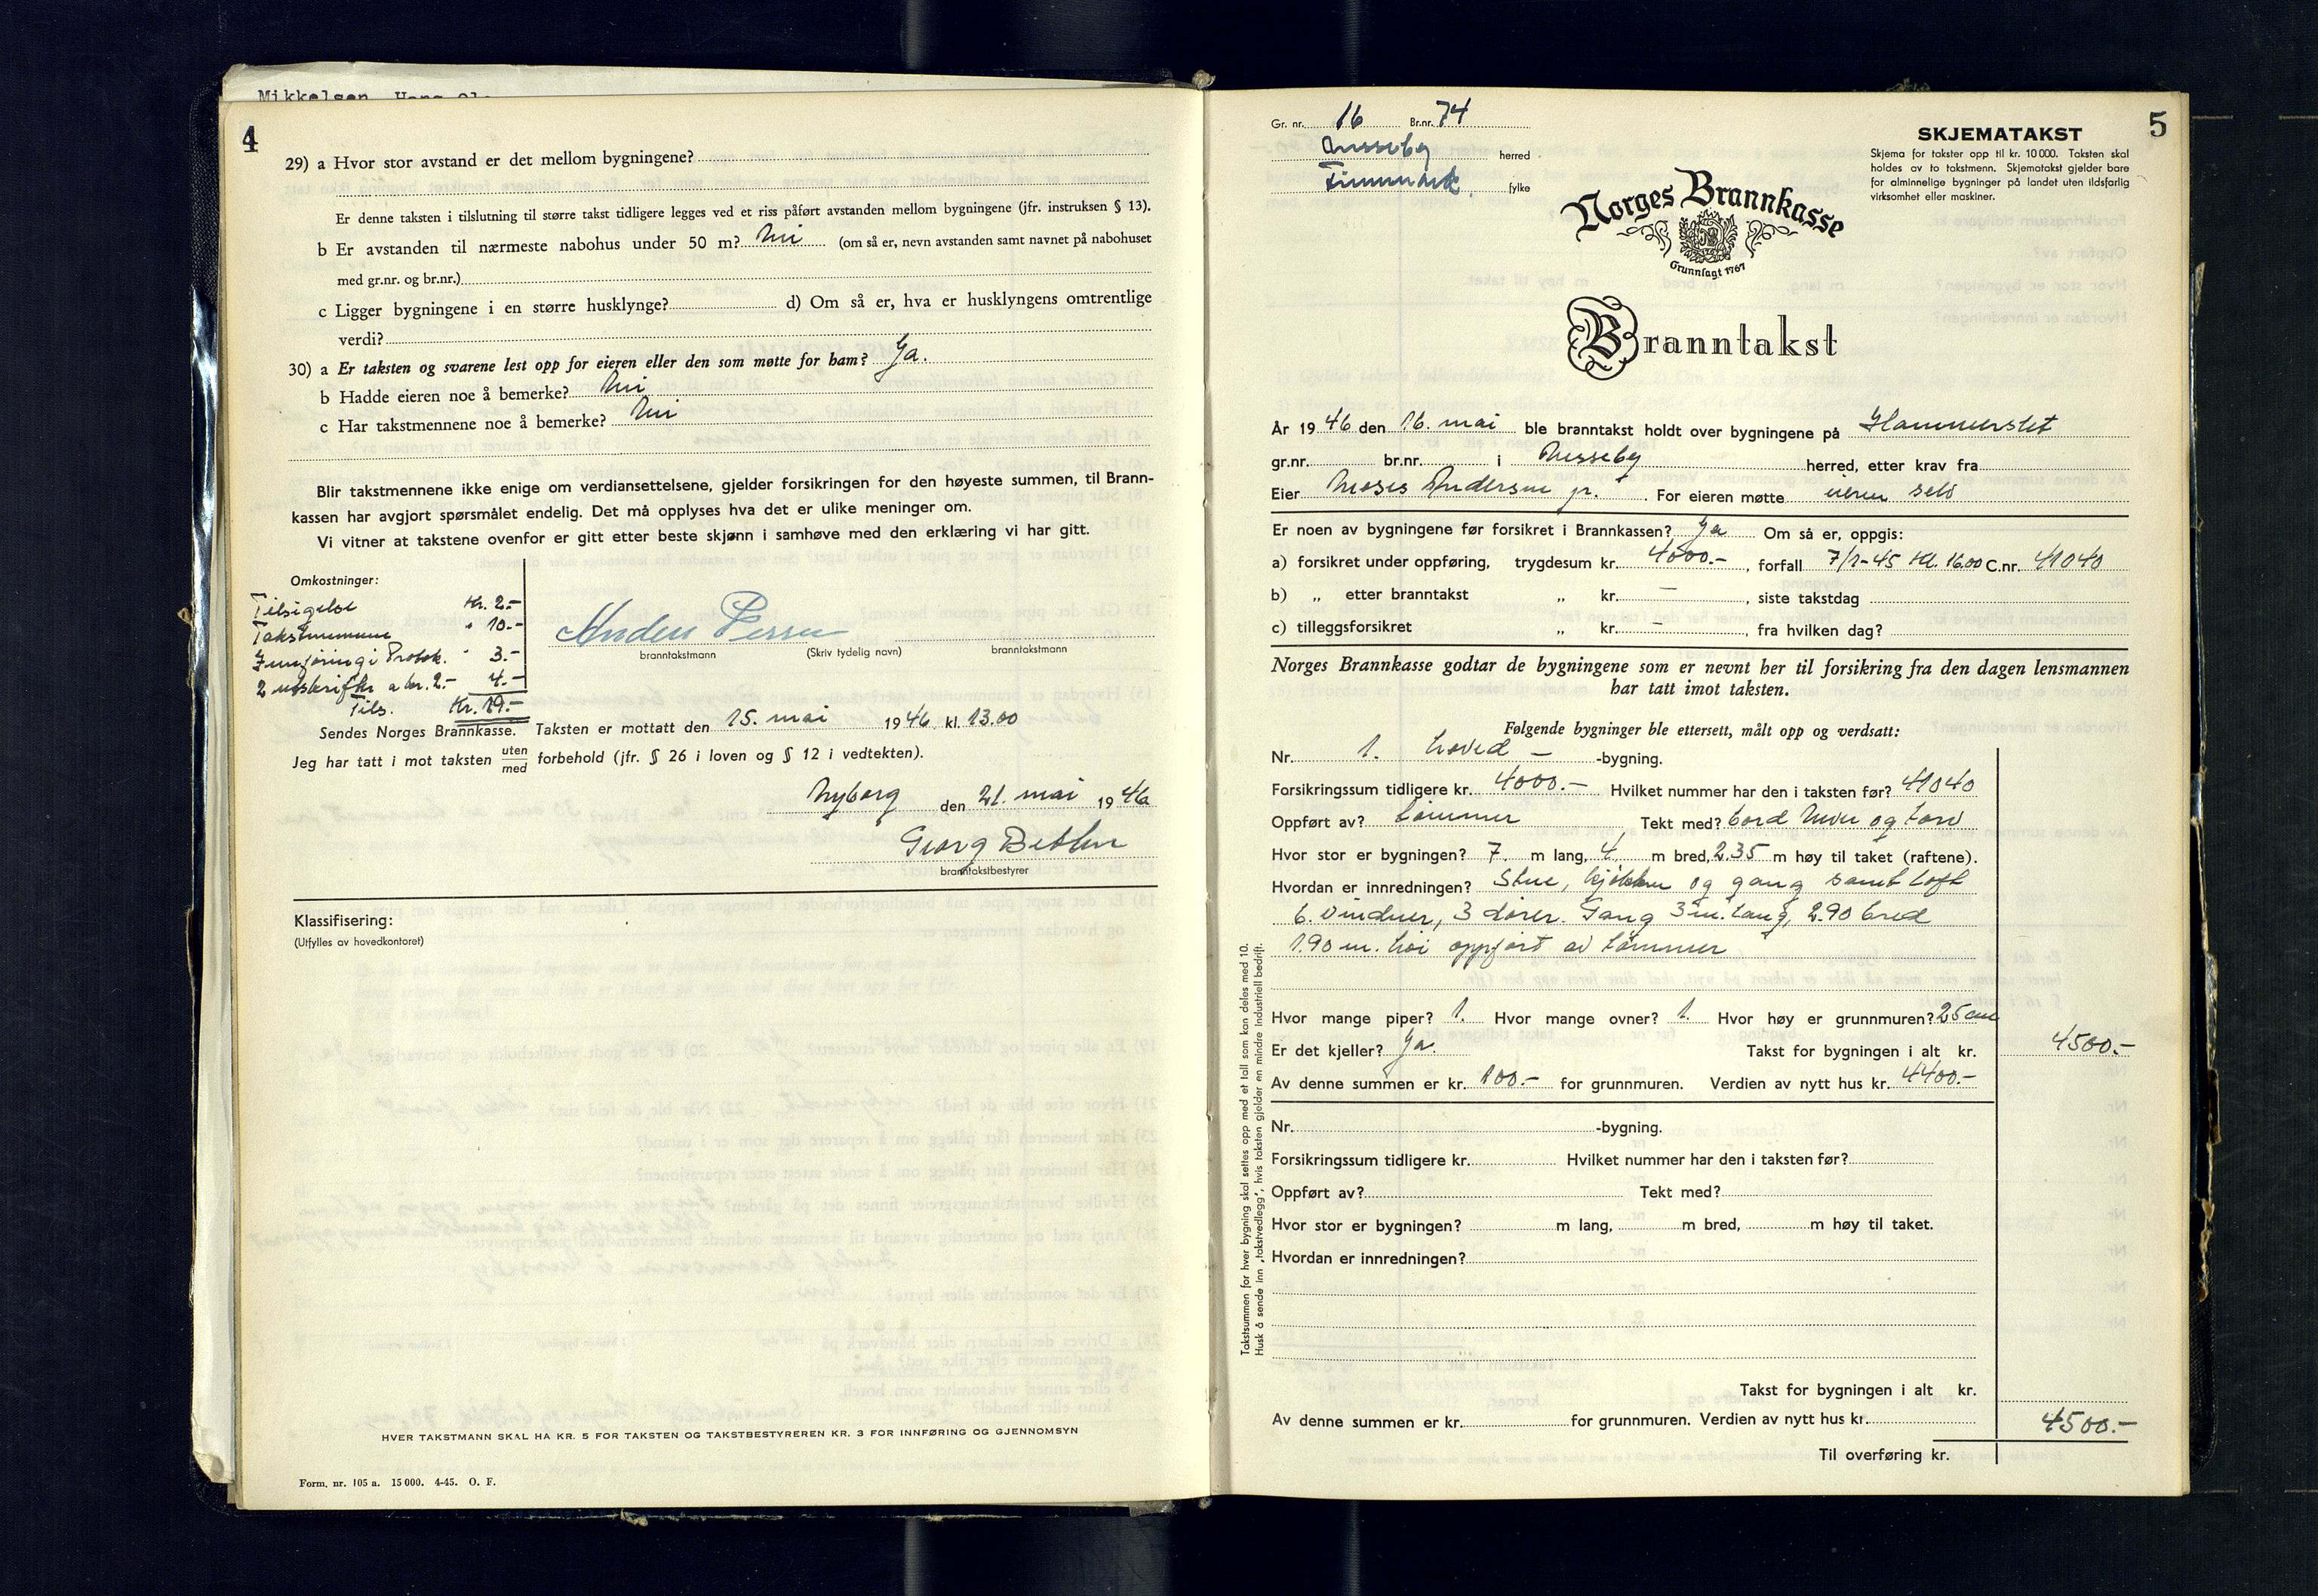 Mikkelsen, Hans
4
29) a Hvor stor avstand er det mellom bygningene?
Er denne taksten i tilslutning til større takst tidligere legges ved et riss påført avstanden mellom bygningene (jfr. instruksen § 13).
b Er avstanden til nærmeste nabohus under 50 m? Nei (om så er, nevn avstanden samt navnet på nabohuset
med gr.nr. og br.nr.)
c Ligger bygningene i en større husklynge? d) Om så er, hva er husklyngens omtrentlige
verdi?
30) a Er taksten og svarene lest opp for eieren eller den som møtte for ham? Ja.
b Hadde eieren noe å bemerke? Nei
c Har takstmennene noe å bemerke? Nei
Blir takstmennene ikke enige om verdiansettelsene, gjelder forsikringen for den høyeste summen, til Brann-
kassen har avgjort spørsmålet endelig. Det må opplyses hva det er ulike meninger om.
Vi vitner at takstene ovenfor er gitt etter beste skjønn i samhøve med den erklæring vi har gitt.
Omkostninger:
Tilsigelse Kr. 2.-
Takstmennene " 10.-
Innføring i Protok. " 3.-
2 utskrifter a kr. 2.- 4.-
Tils. Kr. 19.-
Anders Persen
branntakstmann (Skriv tydelig navn) branntakstmann
Sendes Norges Brannkasse. Taksten er mottatt den 15. mai 1946 kl. 13.00
Jeg har tatt i mot taksten uten/med forbehold (jfr. § 26 i loven og § 12 i vedtekten).
Nyborg den 21. mai 1946
Georg Bethen
branntakstbestyrer
Klassifisering:
(Utfylles av hovedkontoret)
HVER TAKSTMANN SKAL HA KR. 5 FOR TAKSTEN OG TAKSTBESTYREREN KR. 3 FOR INNFØRING OG GJENNOMSYN
Form. nr. 105 a. 15 000. 4-45. O. F.
5
Gr. nr. 16 Br.nr. 74
Nesseby herred
Finnmark fylke
SKJEMATAKST
Skjema for takster opp til kr. 10 000. Taksten skal
holdes av to takstmenn. Skjematakst gjelder bare
for alminnelige bygninger på landet uten ildsfarlig
virksomhet eller maskiner.
Norges Brannkasse
Grunnlagt 1767
Branntakst
År 1946 den 16. mai ble branntakst holdt over bygningene på Hammerstet
gr.nr. br.nr. i Nesseby herred, etter krav fra
Eier Moses Andersen jr. For eieren møtte eieren selv
Er noen av bygningene før forsikret i Brannkassen? Ja Om så er, oppgis:
a) forsikret under oppføring, trygdesum kr. 4000.-, forfall 7/1-45 Kl. 16.00 C.nr. 41040
b) „ etter branntakst „ kr. –, siste takstdag
c) tilleggsforsikret „ kr. –, fra hvilken dag?
Norges Brannkasse godtar de bygningene som er nevnt her til forsikring fra den dagen lensmannen
har tatt imot taksten.
Følgende bygninger ble ettersett, målt opp og verdsatt:
Nr. 1. hoved – -bygning.
Forsikringssum tidligere kr. 4000.- Hvilket nummer har den i taksten før? 41040
Oppført av? tømmer Tekt med? bord never og torv
Hvor stor er bygningen? 7. m lang, 4 m bred, 2.35 m høy til taket (raftene).
Hvordan er innredningen? Stue, kjøkken og gang samt loft
6. vinduer, 3 dører. Gang 3 m. lang, 2.90 bred
1.90 m. høi oppført av tømmer
Hvor mange piper? 1. Hvor mange ovner? 1. Hvor høy er grunnmuren? 25 cm
Er det kjeller? Ja. Takst for bygningen i alt kr. 4500.-
Av denne summen er kr. 100.- for grunnmuren. Verdien av nytt hus kr. 4400.-
Nr. -bygning.
Forsikringssum tidligere kr. Hvilket nummer har den i taksten før?
Oppført av? Tekt med?
Hvor stor er bygningen? m lang, m bred, m høy til taket.
Hvordan er innredningen?
Takst for bygningen i alt kr.
Av denne summen er kr. for grunnmuren. Verdien av nytt hus kr.
4500.-
Til overføring kr.
Takstsummen for hver bygning skal settes opp med et tall som kan deles med 10.
Husk å sende inn „takstvedlegg", hvis taksten gjelder en mindre industriell bedrift.